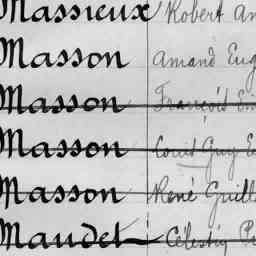 Massieux Robert An
Masson Amand Eug
Masson François Em
Masson Louis Guy E
Masson René Guill
Maudet Célestin Pi